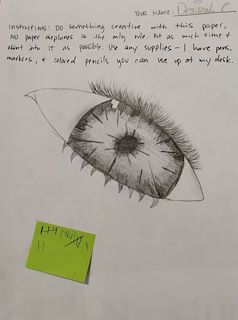 YOUR NAME:
Instructions: Do something creative with this paper,
NO paper airplanes is the only rule. Put as much time +
effort into it as possible. Use any supplies - I have pens,
markers, + colored pencils you can use up at my desk.